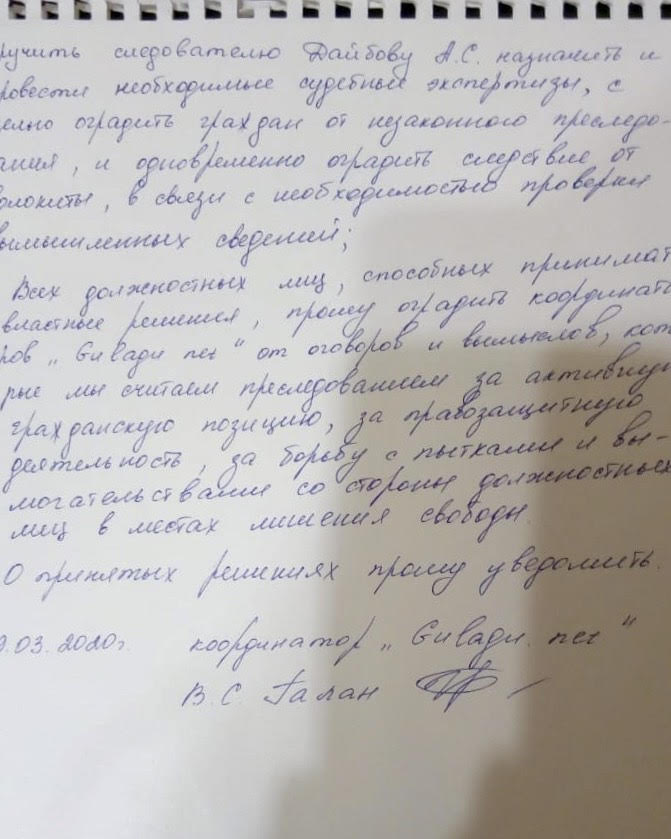 ручить следователю Дайбову А.С. назначить и
ровести необходимые судебные экспертизы, с
елью оградить граждан от незаконного преследо-
ания, и одновременно оградить следствие от
олокиты, в связи с необходимостью проверки
вымышленных сведений;
Всех должностных лиц, способных принимат
властные решения, прошу оградить координато
ров „Gивади net“ от оговоров и вымыслов, кот
рые мы считаем преследованием за активную
гражданскую позицию, за правозащитную
деятельность, за борьбу с пытками и вы-
могательствами со стороны должностных
лиц в местах лишения свободы.
О принятых решениях прошу уведомить.
9.03.2020г. координатор „Gивади. net“
В. С. Галан